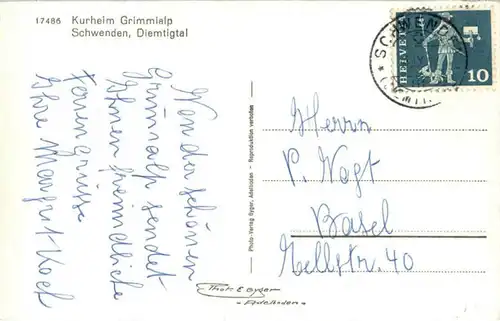 17486 Kurheim Grimmialp
Schwenden, Diemtigtal
Von der schönen
Grimmialp sendet
Ihnen freundliche
Feriengrüsse
Ihre Margrit Koch
Photo-Verlag Gyger, Adelboden - Reproduktion verboten
HELVETIA
10
SCHWENDEN
Herrn
P. Vogt
Basel
Tellstr. 40
Phot. E Gyger
Adelboden